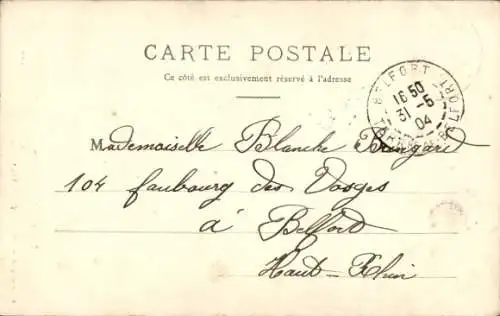 CARTE POSTALE
Ce côté est exclusivement réservé à l'adresse
BELFORT
16 50
31 -5
04
Mademoiselle Blanche
104 faubourg des Vosges
à Belfort
Haut-Rhin